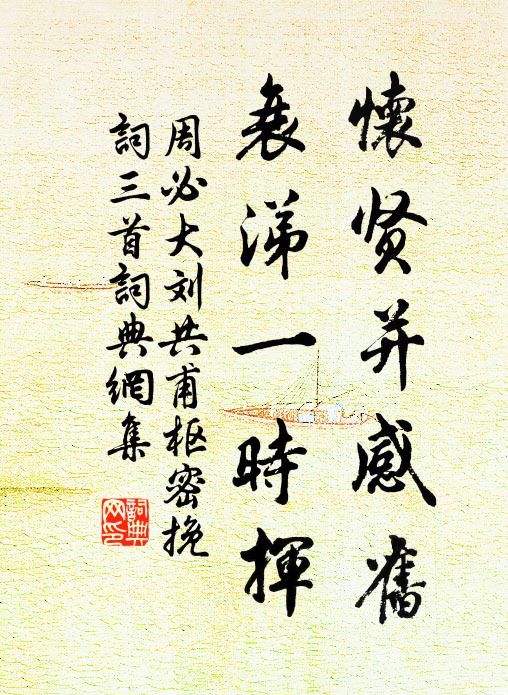 懷贤并感舊
衰涕一時揮
周必大刘共甫枢密挽
詞三首詞典網集
詞典
网印